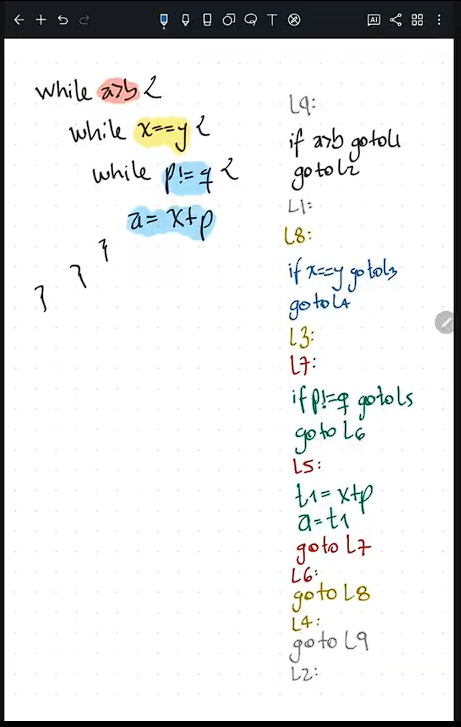 while a>b {
while x==y {
while p!=q {
a= x+p
}
}
}
L9:
if a>b goto L1
goto L2
L1:
L8:
if x==y goto L3
goto L4
L3:
L7:
if p!=q goto L5
goto L6
L5:
t1= x+p
a=t1
goto L7
L6:
goto L8
L4:
goto L9
L2: